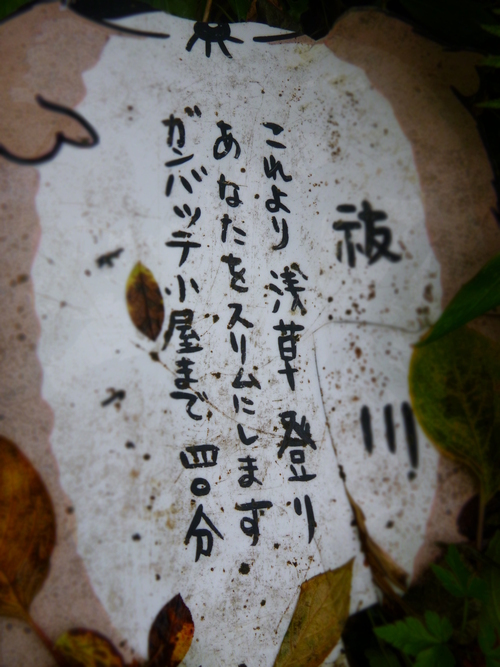 祓川
これより 浅草 登り
あなたをスリムにします。
ガンバッテ小屋まで 四〇分